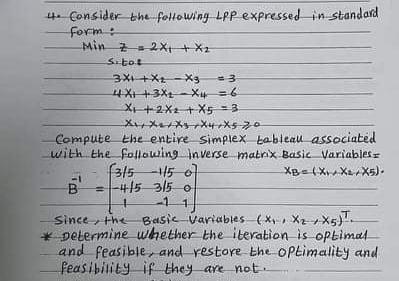 4. Consider the following LPP expressed in standard
form :
Min z = 2X1 + X2
S.to:
3X1 + X2 - X3 = 3
4X1 + 3X2 - X4 = 6
X1 + 2X2 + X5 = 3
X1, X2, X3, X4, X5 ≥ 0
Compute the entire simplex tableau associated
with the following inverse matrix Basic Variables=
B⁻¹ = [3/5 -1/5 0 XB = (X1, X2, X5).
-4/5 3/5 0
1 -1 1]
Since, the Basic Variables (X1, X2, X5)ᵀ.
* Determine whether the iteration is optimal
and feasible, and restore the optimality and
feasibility if they are not.